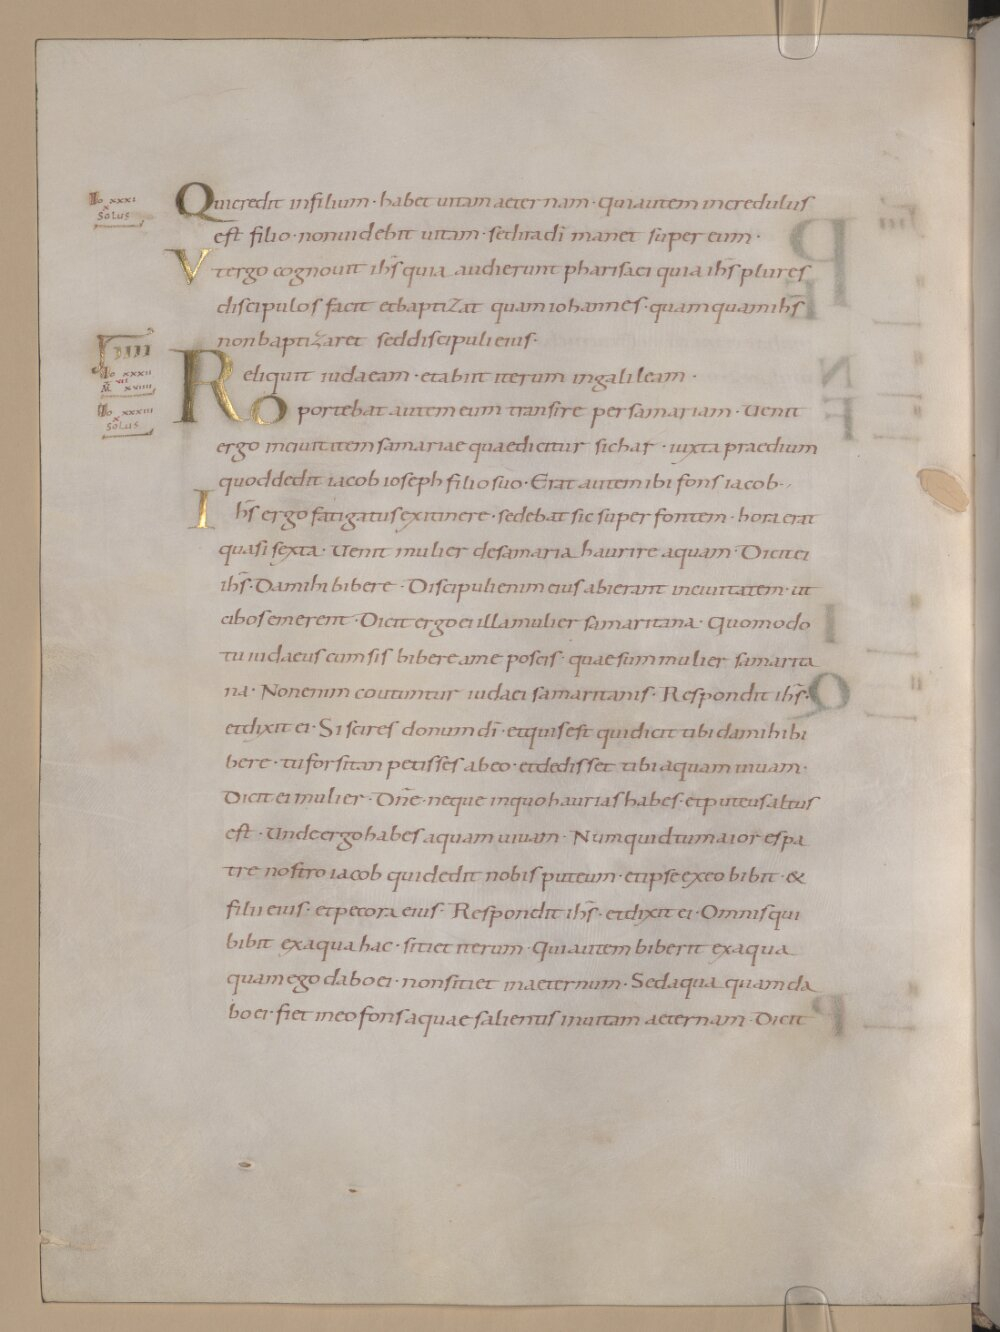 Io xxxi
x
solus
Qui credit in filium · habet uitam aeternam · qui autem incredulus
est filio · non uidebit uitam · sed ira dī manet super eum ·
Vt ergo cognouit ihs̄ quia audierunt pharisaei quia ihs̄ plures
discipulos facit et baptizat quam iohannes · quamquam ihs̄
non baptizaret sed discipuli eius ·
iiii
Io xxxii
vii
M xviiii
Reliquit iudaeam · et abiit iterum in galileam ·
Io xxxiii
x
solus
Oportebat autem eum transire per samariam · Uenit
ergo in ciuitatem samariae quae dicitur sichar · iuxta praedium
quod dedit iacob ioseph filio suo · Erat autem ibi fons iacob ·
Ihs̄ ergo fatigatus ex itinere · sedebat sic super fontem · hora erat
quasi sexta · Uenit mulier de samaria haurire aquam · Dicit ei
ihs̄ · Da mihi bibere · Discipuli enim eius abierant in ciuitatem · ut
cibos emerent · Dicit ergo ei illa mulier samaritana · Quomodo
tu iudaeus cum sis bibere a me poscis · quae sum mulier samarita
na · Non enim coutuntur iudaei samaritanis · Respondit ihs̄ ·
et dixit ei · Si scires donum dī · et quis est qui dicit tibi da mihi bi
bere · tu forsitan petisses ab eo · et dedisset tibi aquam uiuam ·
Dicit ei mulier · Dn̄e · neque in quo haurias habes · et puteus altus
est · Unde ergo habes aquam uiuam · Numquid tu maior es pa
tre nostro iacob qui dedit nobis puteum · et ipse ex eo bibit · &
filii eius · et pecora eius · Respondit ihs̄ · et dixit ei · Omnis qui
bibit ex aqua hac · sitiet iterum · Qui autem biberit ex aqua
quam ego dabo ei · non sitiet in aeternum · Sed aqua quam da
bo ei · fiet in eo fons aquae salientis in uitam aeternam · Dicit